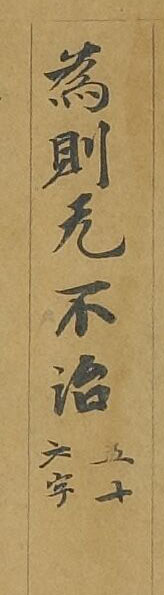 為則无不治五十
六字